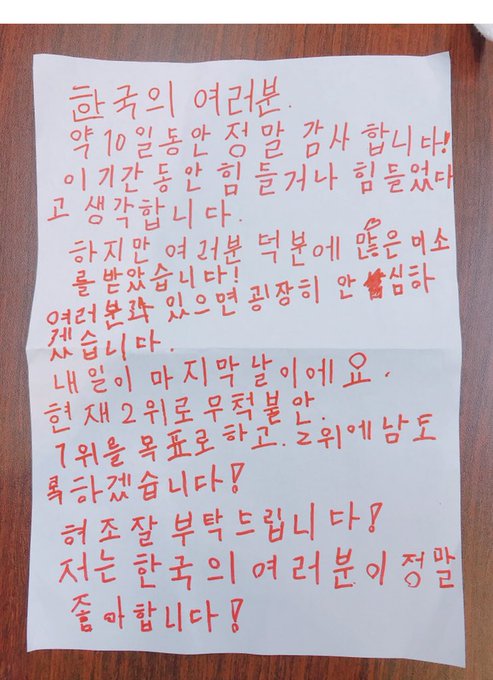 한국의 여러분.
약 10일동안 정말 감사 합니다!
이 기간 동안 힘 들거나 힘 들었다
고 생각합니다.
하지만 여러분 덕분에 많은 미소
를 받았습니다!
여러분과 있으면 굉장히 안 심하
겠습니다.
내일이 마지막 날이에요.
현재 2위로 무척불안.
1위를 목표로 하고. 2위에 남도
록 하겠습니다!
혀조잘 부탁드립니다!
저는 한국의 여러분이 정말
좋아합니다!